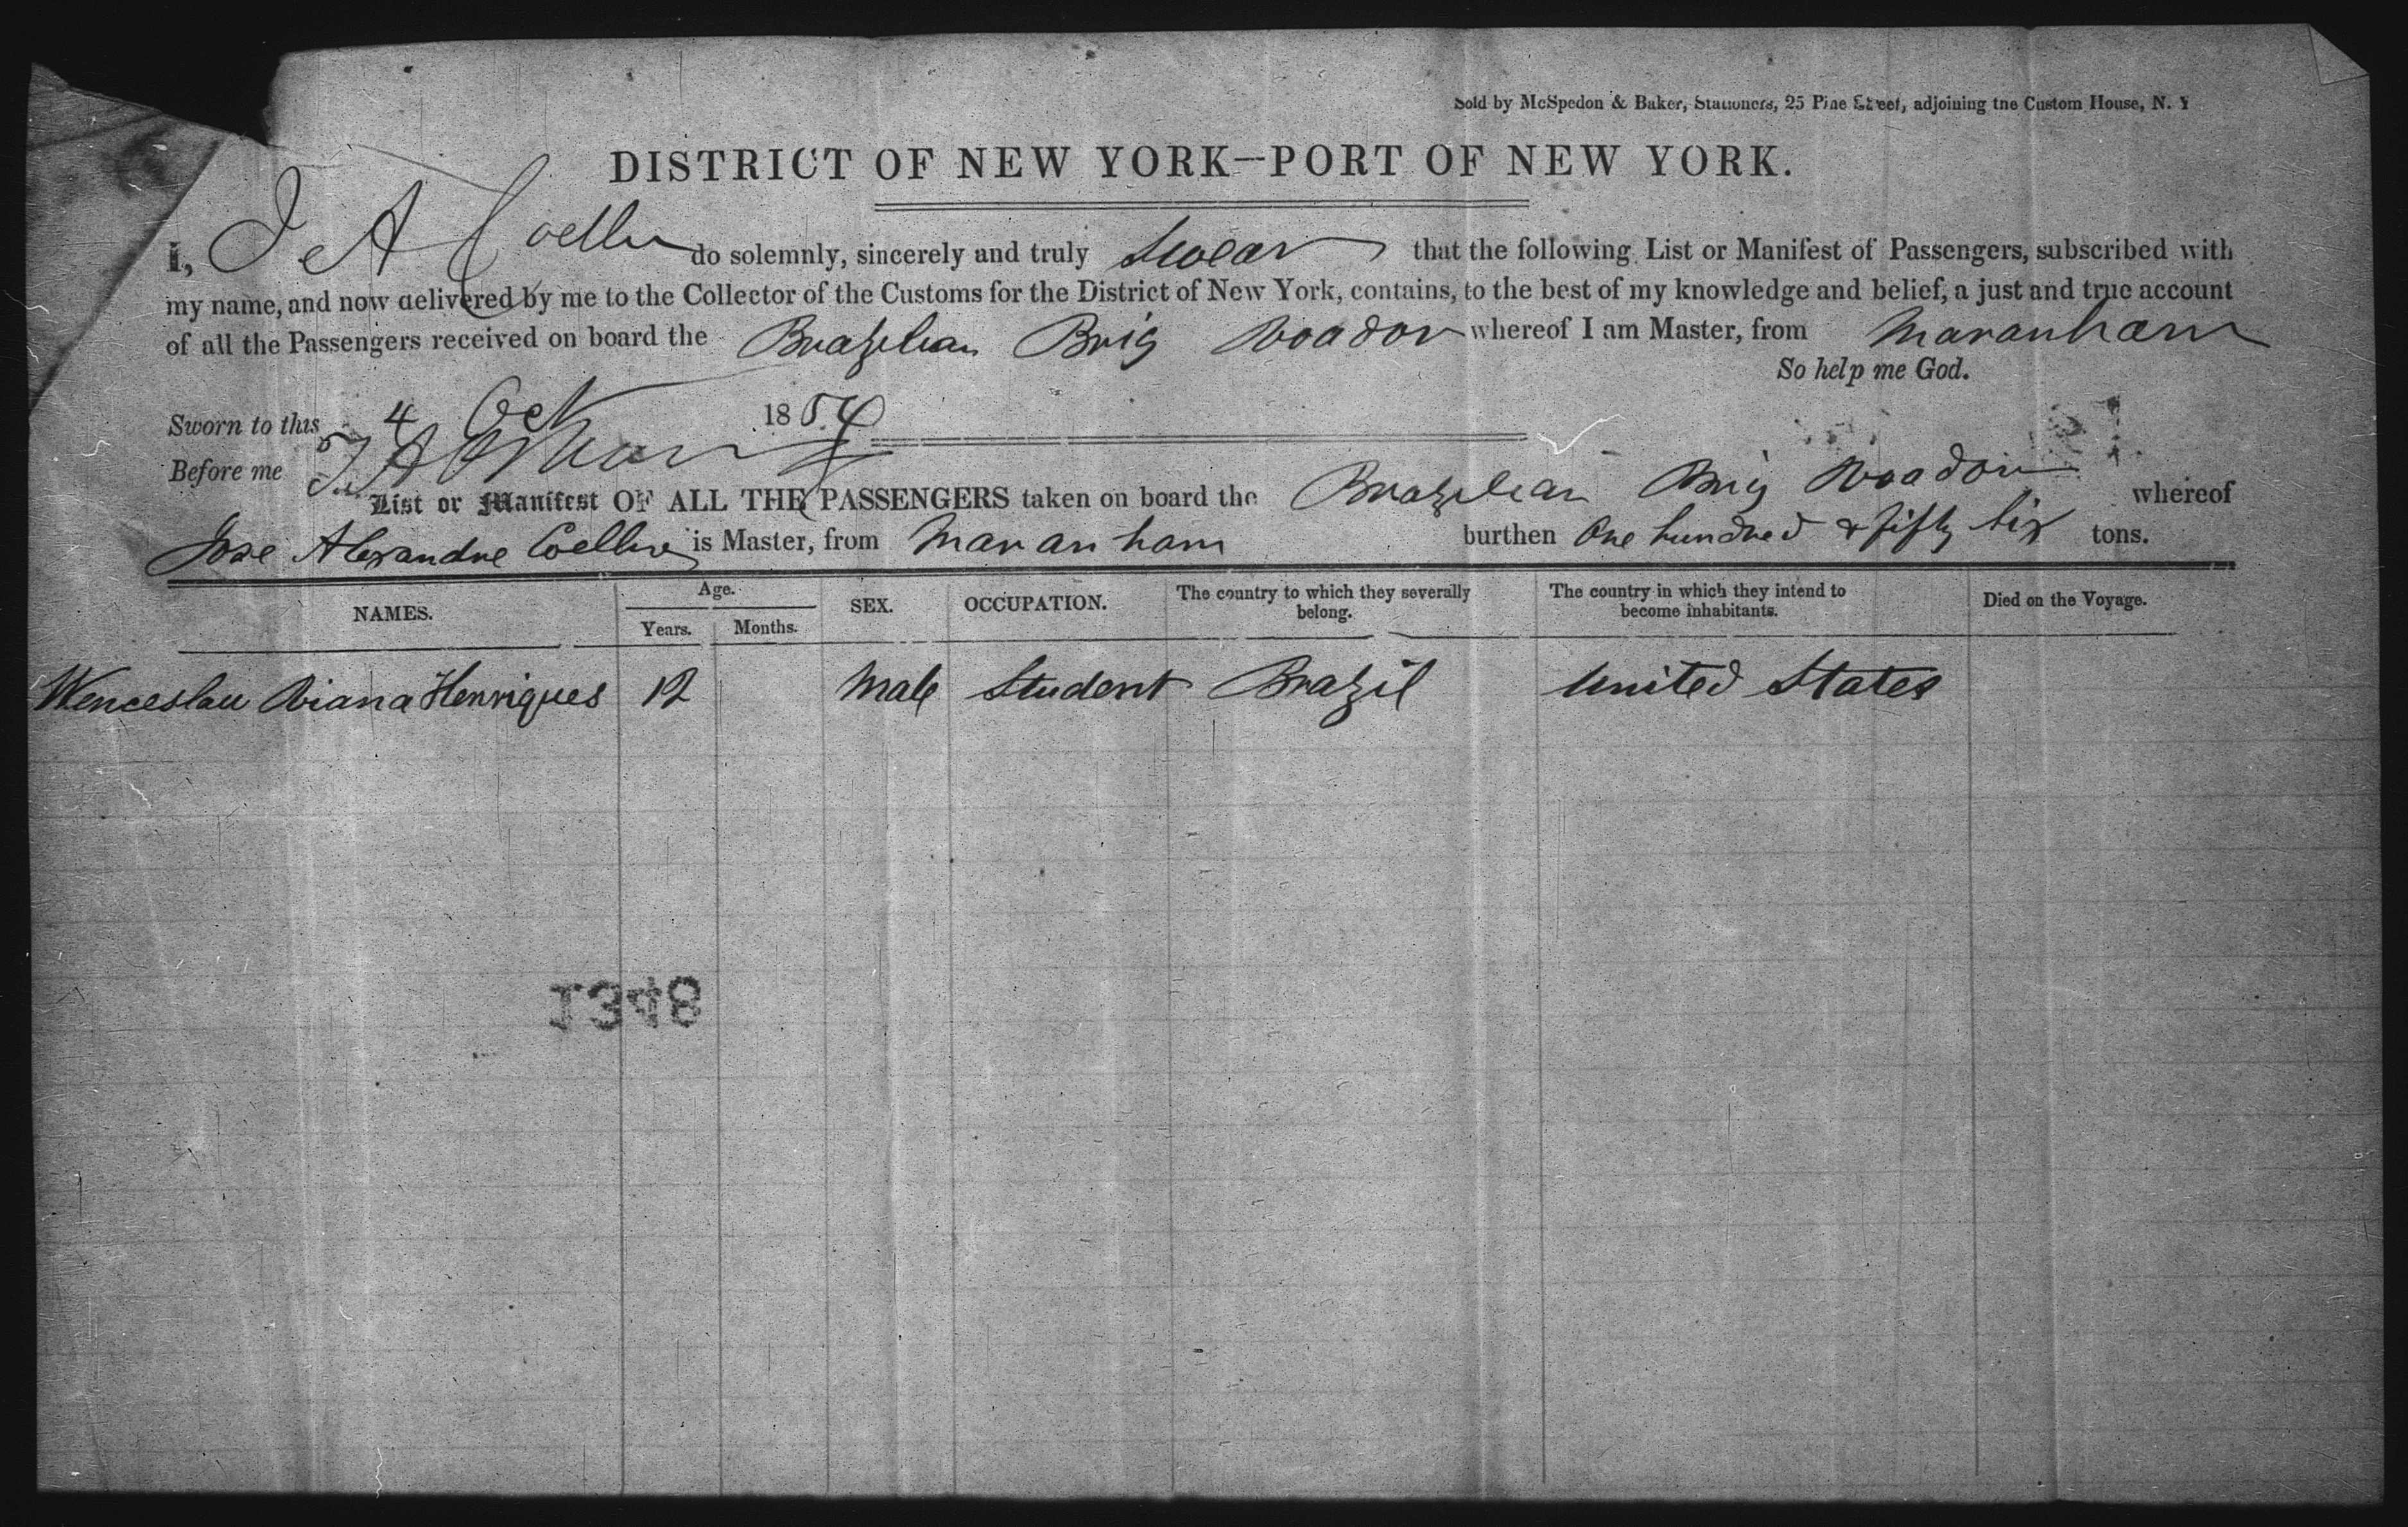 Sold by McSpedon & Baker, Stationers, 25 Pine Street, adjoining the Custom House, N. Y
DISTRICT OF NEW YORK—PORT OF NEW YORK.
I, J A Coelho do solemnly, sincerely and truly Swear that the following List or Manifest of Passengers, subscribed with
my name, and now delivered by me to the Collector of the Customs for the District of New York, contains, to the best of my knowledge and belief, a just and true account
of all the Passengers received on board the Brazilian Brig Voador whereof I am Master, from Maranham
So help me God.
Sworn to this 4 Oct 1854
Before me
List or Manifest OF ALL THE PASSENGERS taken on board the Brazilian Brig Voador whereof
Jose Alexandre Coelho is Master, from Maranham burthen One hundred & fifty six tons.
NAMES. Age. Years. Months. SEX. OCCUPATION. The country to which they severally belong. The country in which they intend to become inhabitants. Died on the Voyage.
Wenceslau Viana Henriques 12 Male Student Brazil United States
1348